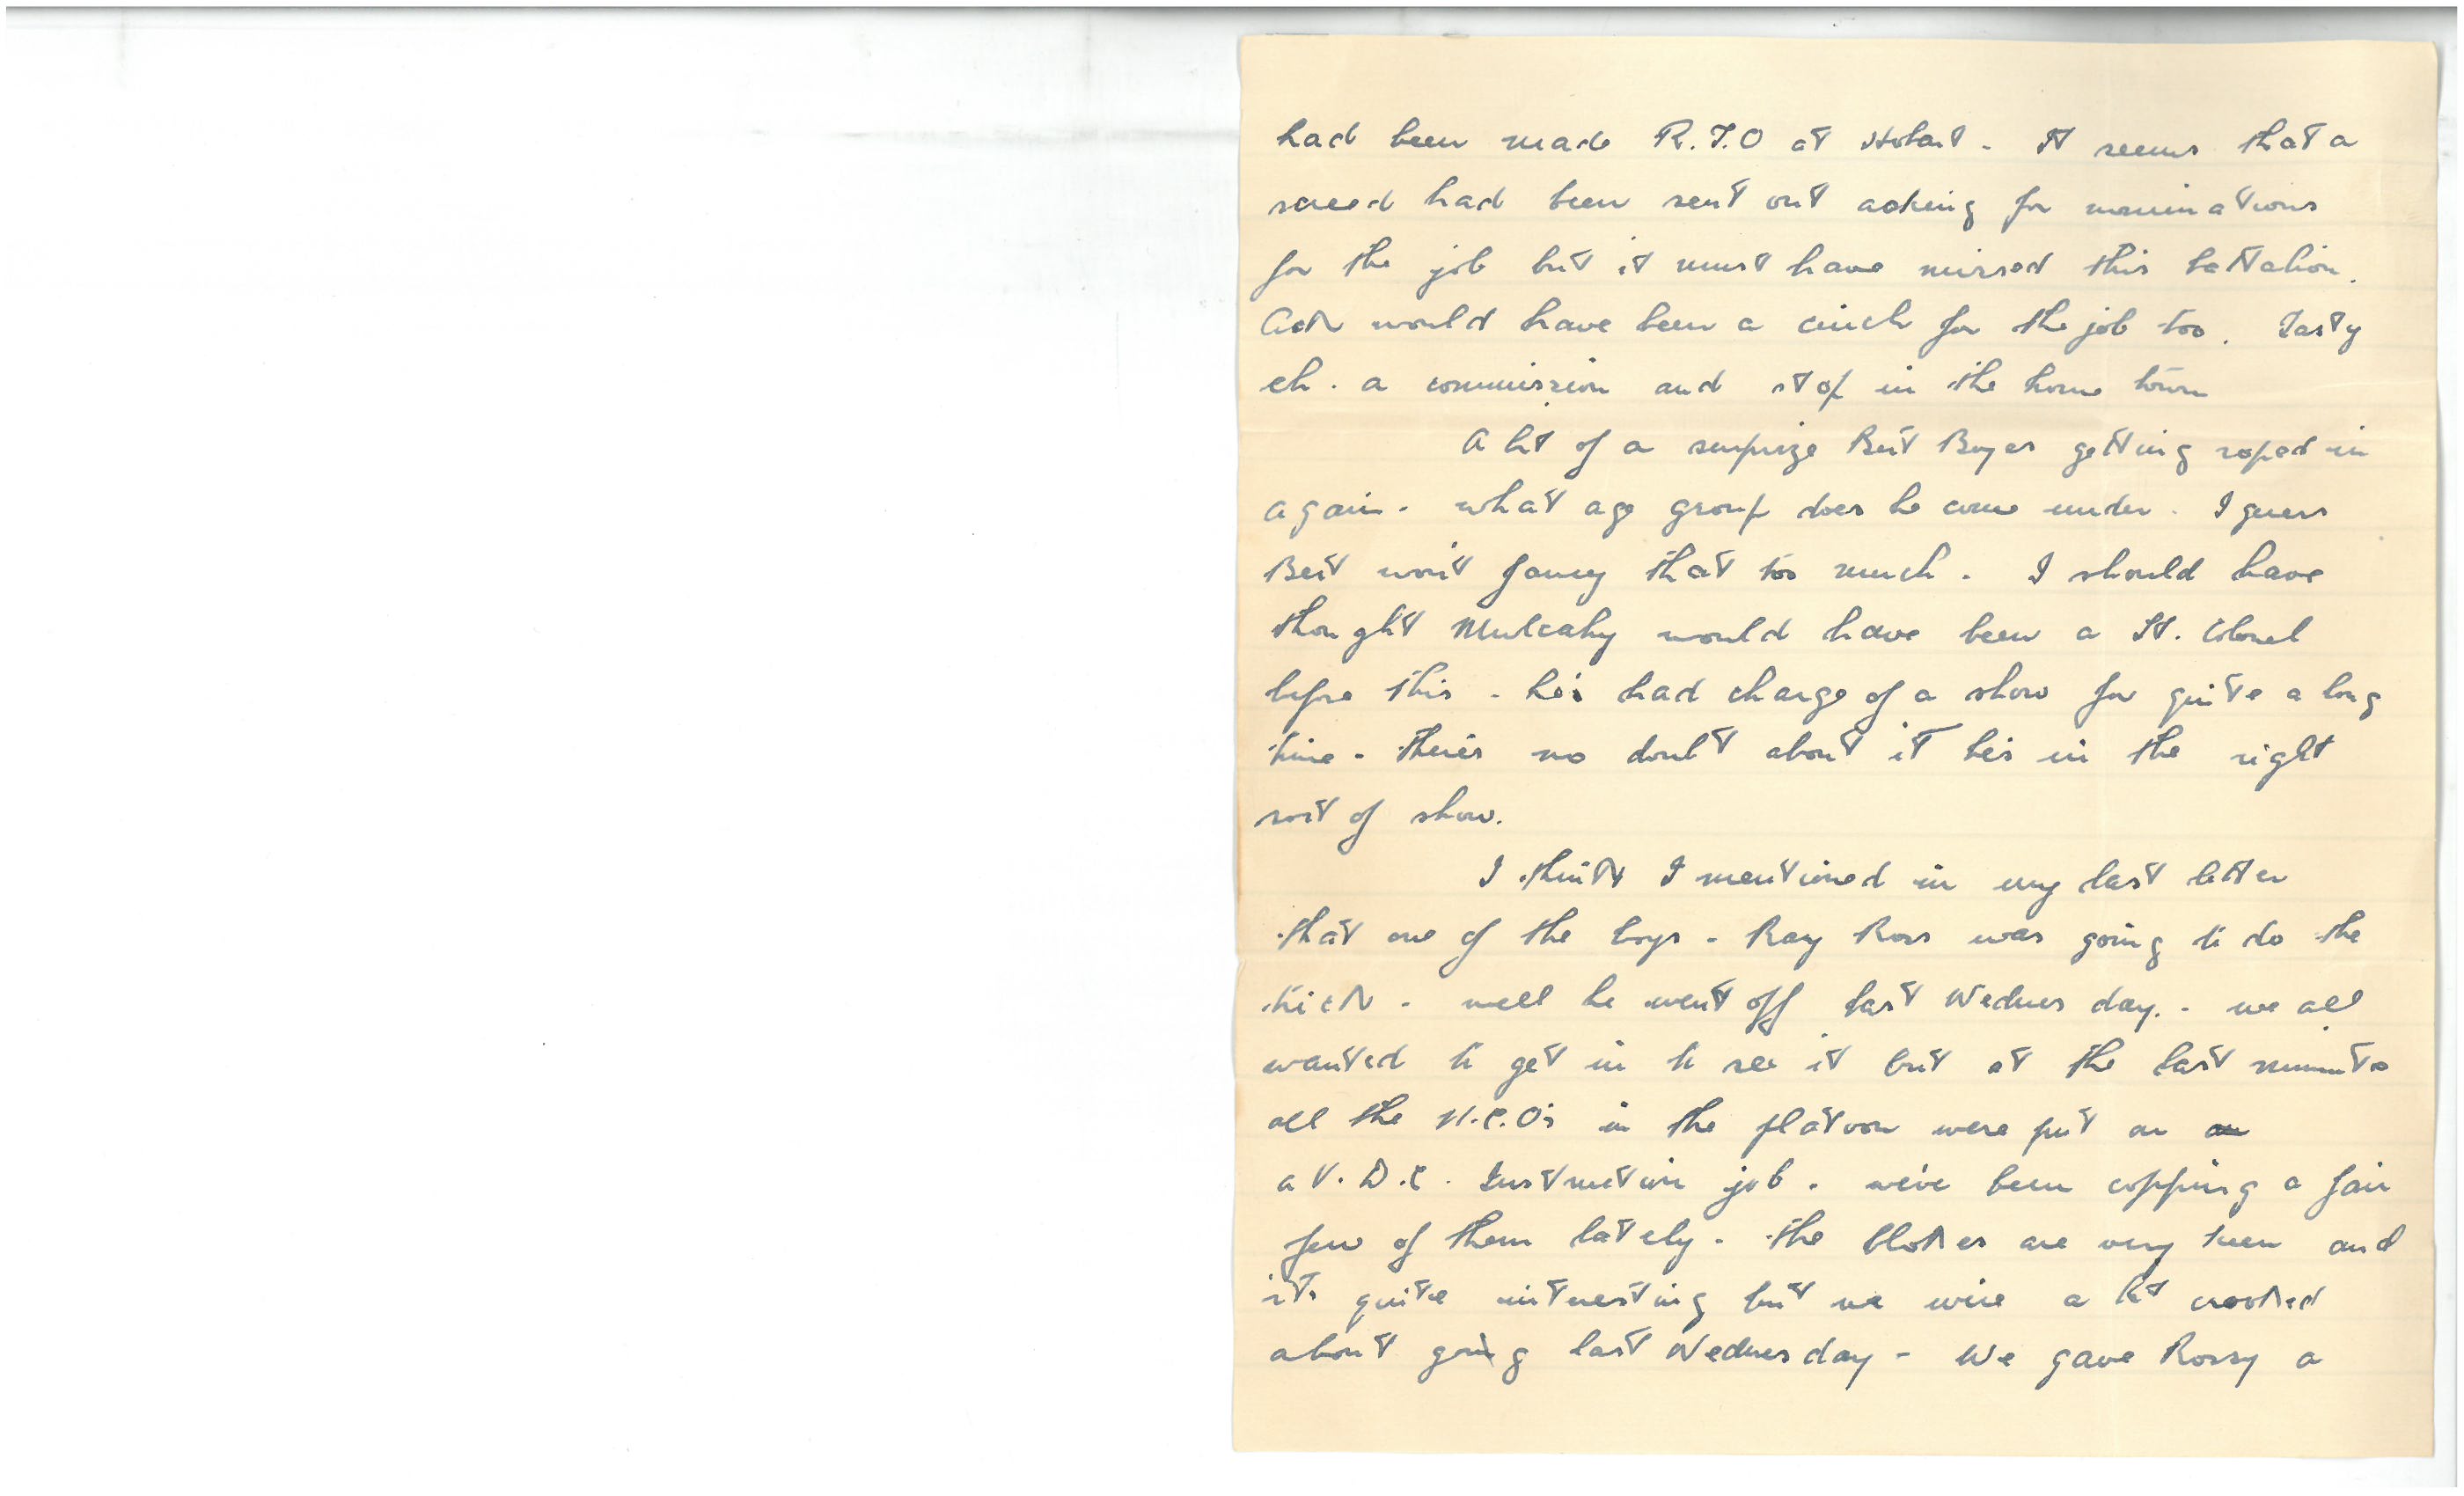 had been made R.T.O at Hobart - It seems that a
screed had been sent out asking for nominations
for the job but it must have missed this battalion.
would have been a cinch for the job too. Tasty
eh. a commission and stop in the home town
A bit of a surprize Bert Boyes getting roped in
again. what age group does he come under. I guess
Bert won't fancy that too much. I should have
thought Mulcahy would have been a Lt. Colonel
before this - he's had charge of a show for quite a long
time - there's no doubt about it he's in the right
sort of show.
I think I mentioned in my last letter
that one of the boys - Ray Ross was going to do the
trick - well he went off last Wednesday. - we all
wanted to get in to see it but at the last minute
all the N.C.O's in the platoon were put on
a V.D.C. Instruction job. we've been copping a fair
few of them lately - the blokes are very keen and
its quite interesting but we were a bit crooked
about going last Wednesday - We gave Rossy a